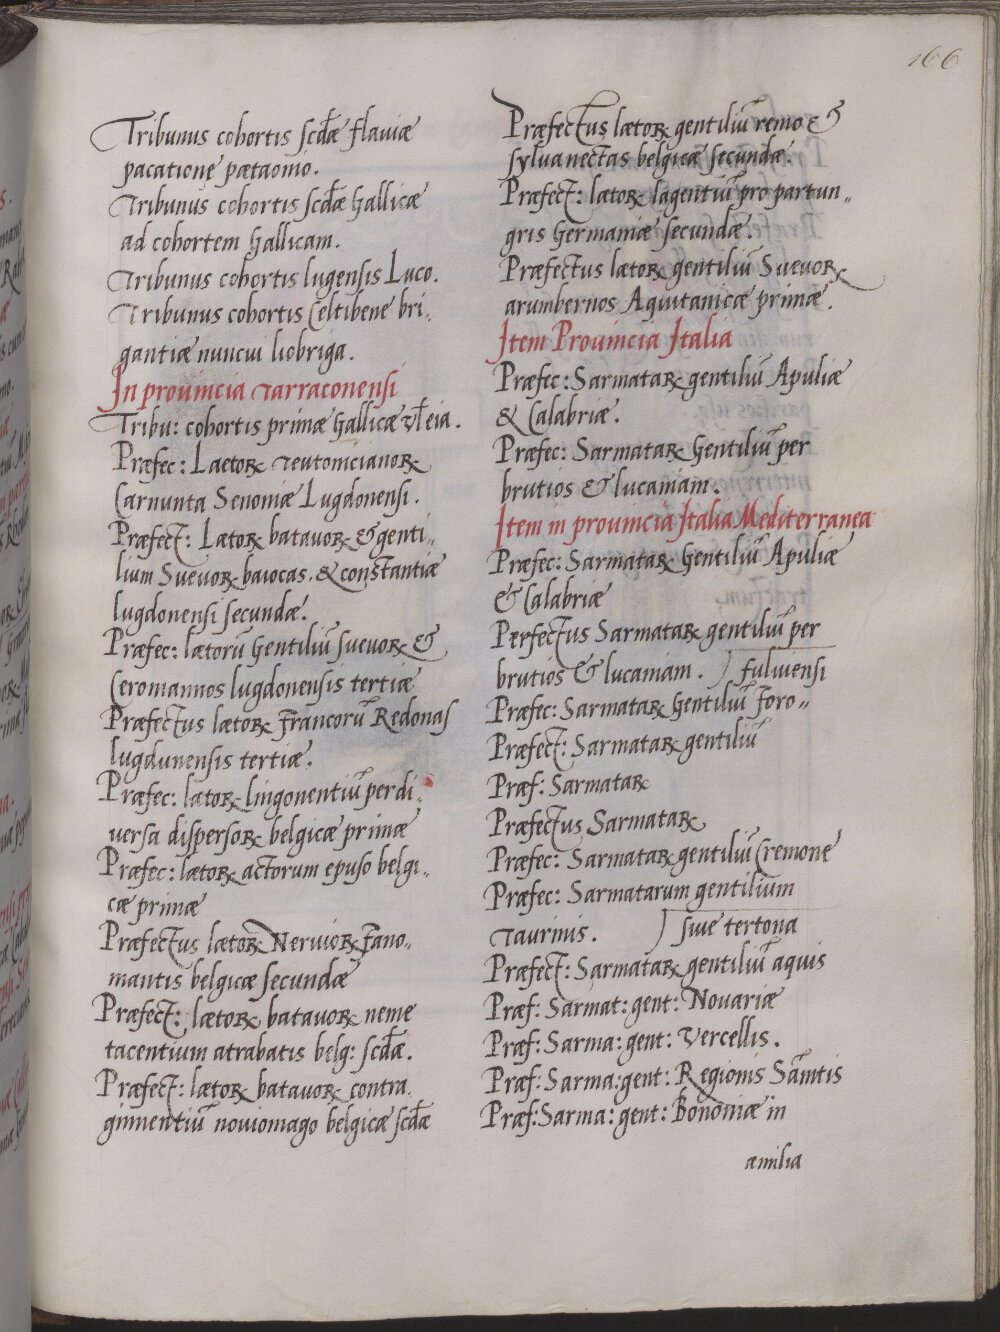 166
Tribunus cohortis scđæ flaviæ
pacationę pætaonio.
Tribunus cohortis scđæ Gallicæ
ad cohortem Gallicam.
Tribunus cohortis lugensis Luco.
Tribunus cohortis Celtibene bri,,
gantiæ nuncui liobriga.
In prouincia tarraconensi
Tribu: cohortis primæ Gallicæ vłeia.
Præfec: Laetoꝝ teutomcianoꝝ
Carnunta Senoniæ Lugdonensi.
Præfect: Lætoꝝ batauoꝝ & genti,,
lium Sueuoꝝ baiocas. & constantiæ
lugdonensi secundæ.
Præfec: lætorū Gentiliū sueuoꝝ &
Ceromannos lugdonensis tertiæ
Præfectus lætoꝝ Francorū Redonas
lugdunensis tertiæ.
Præfec: lætoꝝ lingonentiū per di,,
uersa dispersoꝝ belgicæ primæ
Præfec: lætoꝝ actorum epuso belgi,,
cæ primæ
Præfectus lætoꝝ Neruioꝝ Fano,,
mantis belgicæ secundæ
Præfect: lætoꝝ batauoꝝ nemę
tacentium atrabatis belg: scđæ.
Præfect: lætoꝝ batauoꝝ contra.
ginnentiū nouiomago belgicæ scđæ
Præfectus lætoꝝ gentiliū remo &
syluanectas belgicæ secundæ.
Præfect: lætoꝝ lagentiū pro partun,,
gris Germaniæ secundæ.
Præfectus lætoꝝ gentiliū Sueuoꝝ
arumbernos Aquitanicæ primæ.
Item Prouincia Italia
Præfec: Sarmataꝝ gentiliū Apuliæ
& Calabriæ.
Præfec: Sarmataꝝ Gentiliū per
brutios & lucaniam.
Item in prouincia Italia Mediterranea
Præfec: Sarmataꝝ Gentiliū Apuliæ
& Calabriæ
Perfectus Sarmataꝝ gentiliū per
brutios & lucaniam. ) fuliuensi
Præfec: Sarmataꝝ Gentiliū Foro,,
Præfect: Sarmataꝝ gentiliū
Præf: Sarmataꝝ
Præfectus Sarmataꝝ
Præfec: Sarmataꝝ gentiliū Cremonę
Præfec: Sarmatarum gentilium
Taurinis. ) siue tertona
Præfect: Sarmataꝝ gentiliū aquis
Præf: Sarmat: gent: Nouariæ
Præf: Sarma: gent: Vercellis.
Præf: Sarma: gent: Regionis Sāmtis
Præf: Sarma: gent: Bononiæ in
æmilia